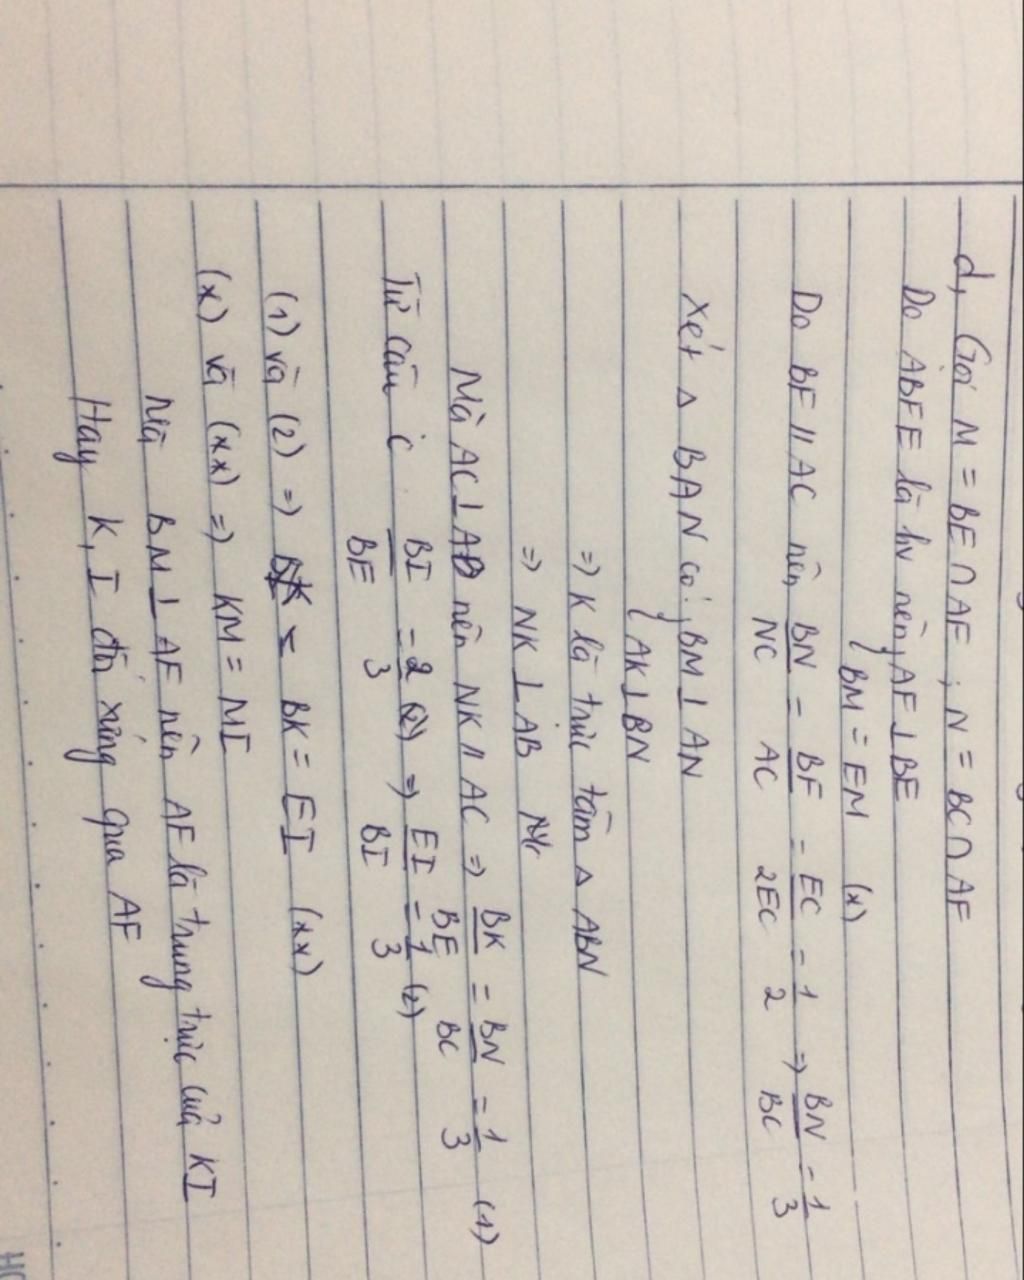 d, Gọi M = BE ∩ AF ; N = BC ∩ AF
Do ABFE là hv nên { AF ⊥ BE
BM = EM (x)
Do BF // AC nên BN/NC = BF/AC = EC/2EC = 1/2 => BN/BC = 1/3
Xét △ BAN có: { BM ⊥ AN
AK ⊥ BN
=> K là trực tâm △ ABN
=> NK ⊥ AB
Mà AC ⊥ AB nên NK // AC => BK/BE = BN/BC = 1/3 (1)
Từ câu c BI/BE = 2/3 => EI/BI = 1/3 (2)
(1) và (2) => BK = EI (xx)
(x) và (xx) => KM = MI
Mà BM ⊥ AF nên AF là trung trực của KI
Hay K, I đối xứng qua AF